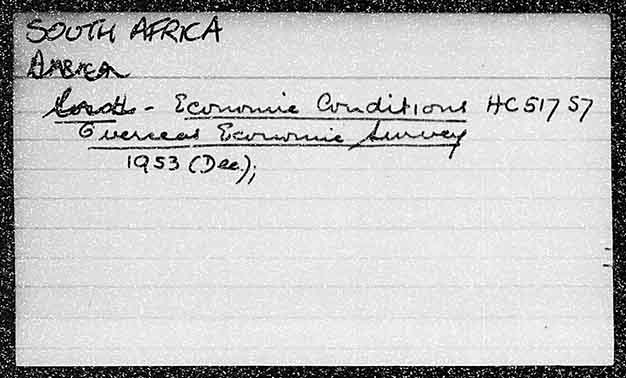 SOUTH AFRICA
AFRICA
South - Economic Conditions HC 517 S7
Overseas Economic Survey
1953 (Dec.);